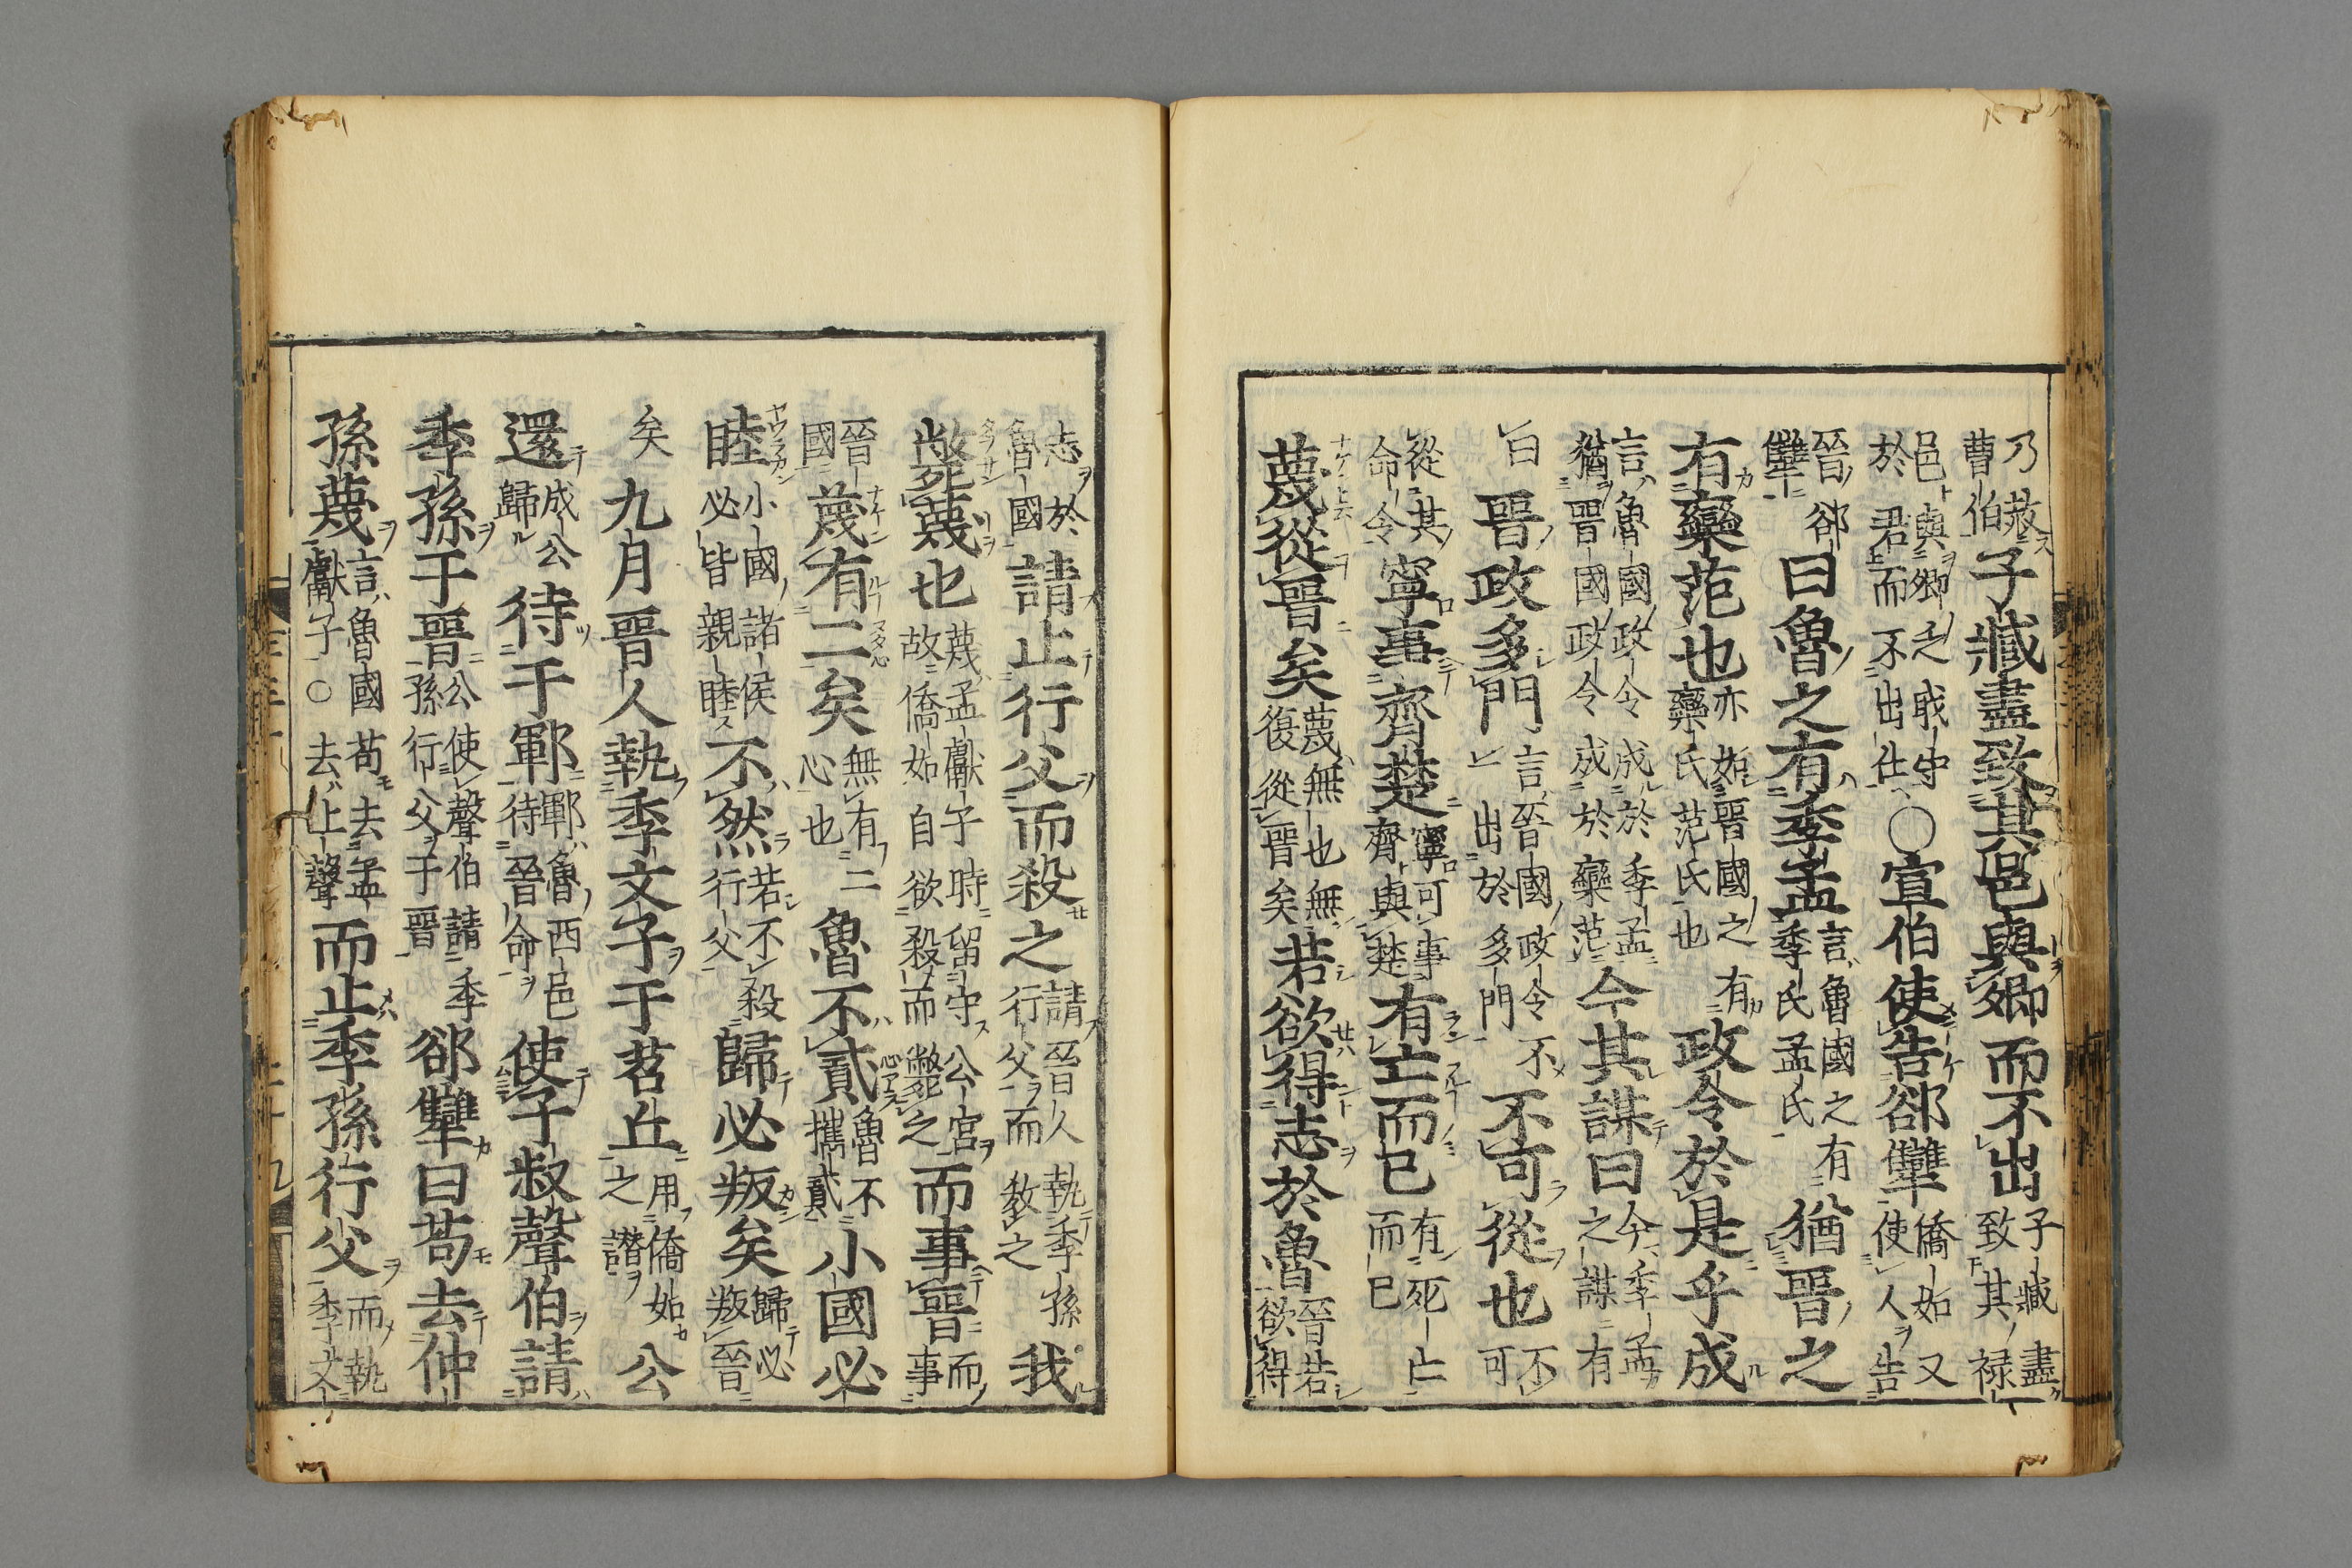 乃發子臧盡致其邑與卿而不出子臧盡
曹伯致其祿
邑與卿之戝守○宣伯使告郤犫僑如又
於君而不出仕使人告
晉郤犫曰魯之有季孟言魯國之有季氏孟氏猶晉之
有欒范也亦如晉國之有欒氏范氏也政令於是乎成
言魯國政令成於季孟猶晉國政令成於欒范今其謀曰今季孟之謀有
曰晉政多門言晉國政令不一出於多門不可從也不可
從其命令寧事齊楚寧可事齊與楚有亡而已有死亡而已
蔑從晉矣蔑無也無復從晉矣若欲得志於魯晉若欲得
志於魯國請止行父而殺之請晉人執季孫行父而殺之我
斃蔑也蔑孟獻子時留守公宮故僑如自欲殺而斃之而事晉而事
晉國蔑有二矣無有二心也魯不貳魯不攜貳小國必
睦小國諸侯必皆親睦不然若不殺行父歸必叛矣歸必叛晉
矣九月晉人執季文子于苕丘用僑如之譖公
還成公歸待于鄆鄆魯西邑待晉命使子叔聲伯請
季孫于晉公使聲伯請季孫行父于晉郤犫曰苟去仲
孫蔑言魯國苟去孟獻子○去上聲而止季孫行父而執季文